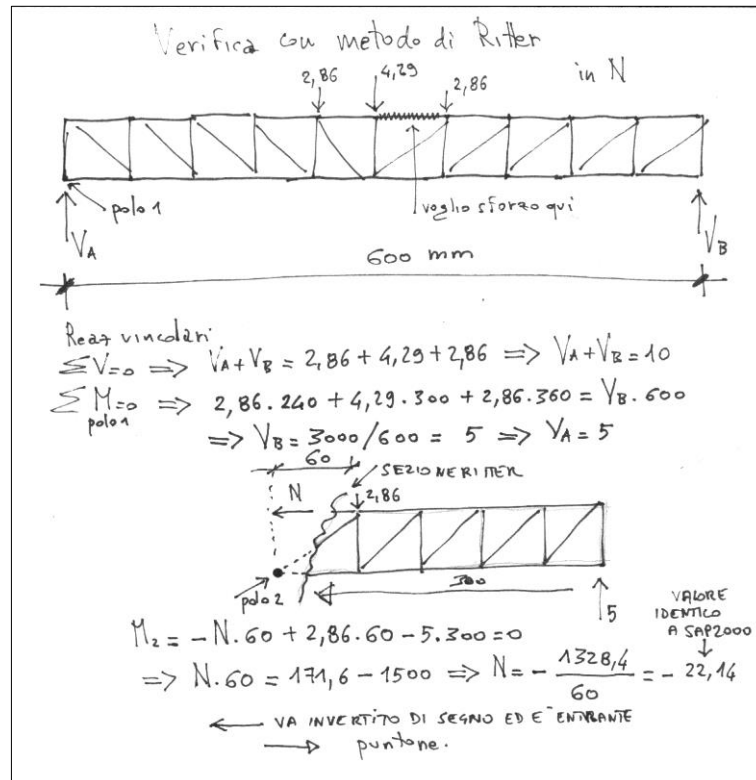 Verifica con metodo di Ritter
2,86 4,29 2,86 in N
polo 1 voglio sforzo qui
VA VB
600 mm
Reaz vincolari
ΣV=0 => VA+VB = 2,86 + 4,29 + 2,86 => VA+VB = 10
ΣM=0 => 2,86.240 + 4,29.300 + 2,86.360 = VB.600
polo 1
=> VB = 3000/600 = 5 => VA = 5
60
SEZIONE RITTER
N 2,86
polo 2 300 5
VALORE
IDENTICO
A SAP2000
M2 = -N.60 + 2,86.60 - 5.300 = 0
=> N.60 = 171,6 - 1500 => N = - 1328,4/60 = - 22,14
← VA INVERTITO DI SEGNO ED E' ENTRANTE
→ puntone.